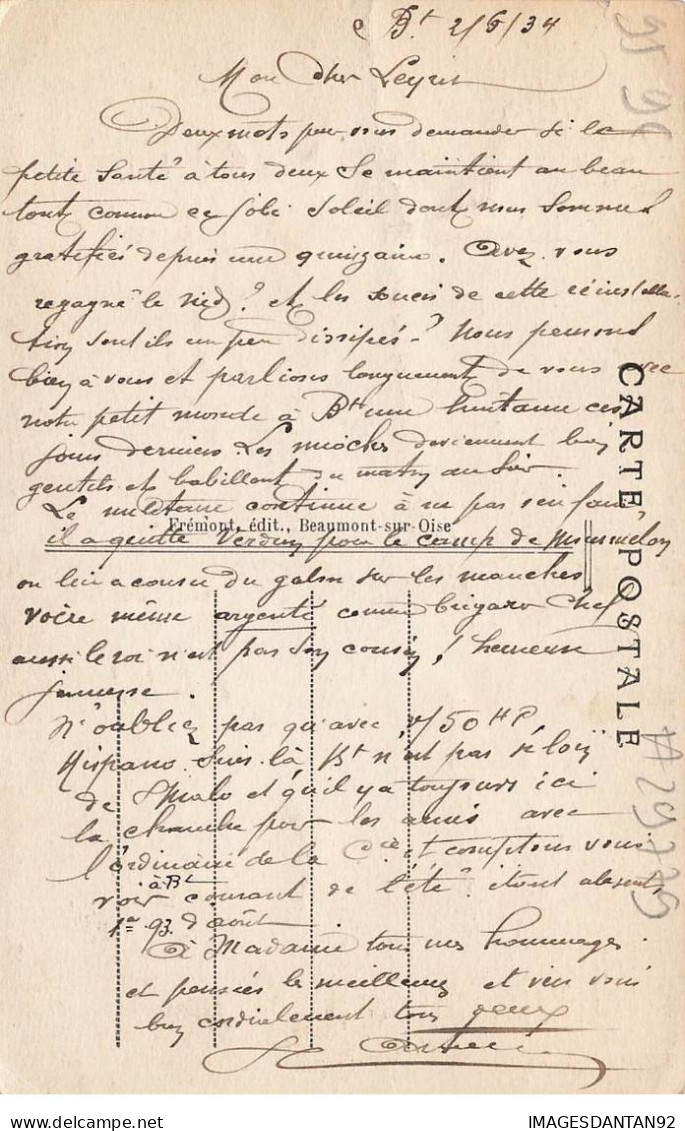 Bt 2/6/34
Mon cher Leyrit
Deux mots pour vous demander si la
petite santé à tous deux se maintient au beau
tout comme ce joli soleil dont nous sommes
gratifiés depuis une quinzaine. Avez vous
regagné le nid ? et les soucis de cette réinstalla-
tion sont ils un peu dissipés ? Nous pensons
bien à vous et parlions longuement de vous avec
notre petit monde à Bt une huitaine ces
jours derniers. Les mioches deviennent bien
gentils et babillent du matin au soir.
Le militaire continue à ne pas s'en faire,
il a quitté Verdun pour le camp de Mourmelon
on lui a cousu du galon sur les manches
voire même argenté comme brigadier chef
aussi le roi n'est pas son cousin ! heureuse
jeunesse.
N'oubliez pas qu'avec 50 HP
Hispano Suis là Bt n'est pas si loin
de St Malo et qu'il y a toujours ici
la chambre pour les amis avec
l'ordinaire de la Cie et comptons vous
voir à Bt courant de l'été étant absents
d'août.
À Madame tous mes hommages
et pensées les meilleures et
bien cordialement tous deux
Frémont, édit., Beaumont-sur-Oise
CARTE POSTALE
IMAGESDANTAN92